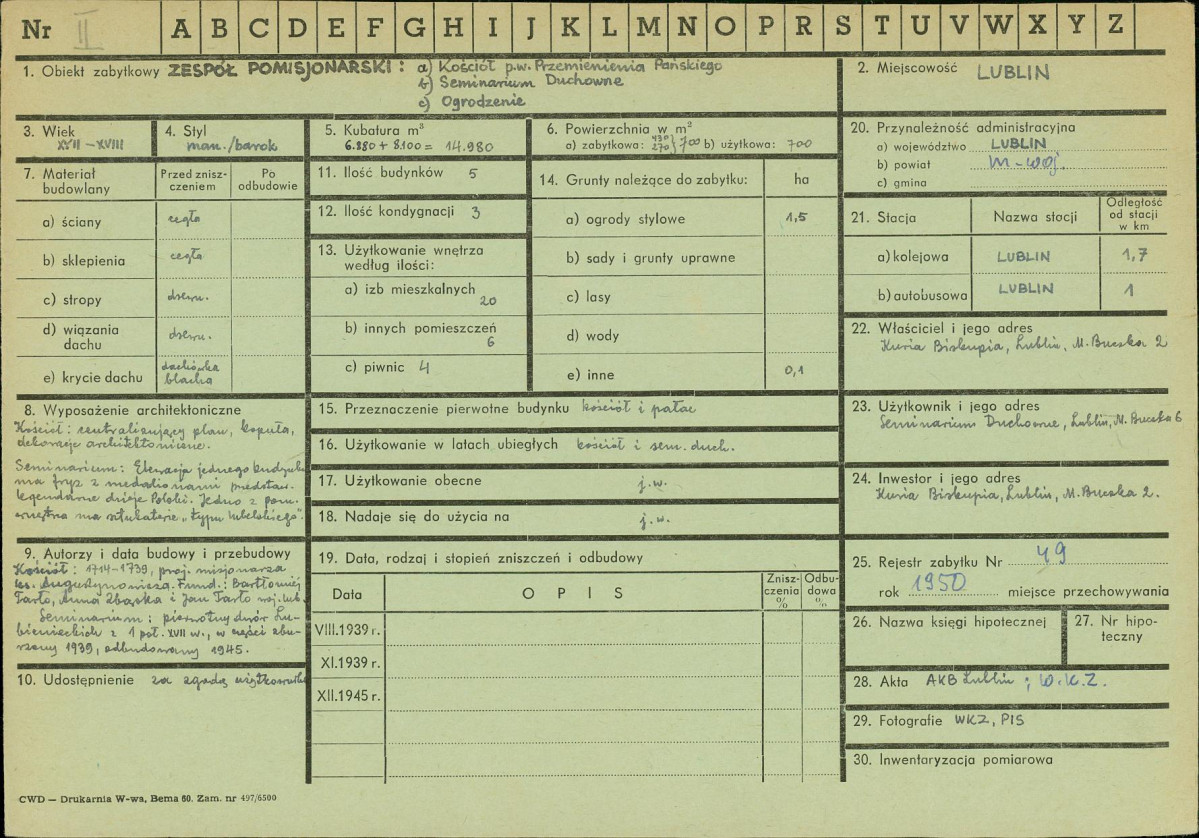 Nr II A B C D E F G H I J K L M N O P R S T U V W X Y Z
1. Obiekt zabytkowy ZESPÓŁ POMISJONARSKI : a) Kościół p.w. Przemienienia Pańskiego
b) Seminarium Duchowne
c) Ogrodzenie
2. Miejscowość LUBLIN
3. Wiek
XVII – XVIII
4. Styl
man./barok
5. Kubatura m³
6.880 + 8.100 = 14.980
6. Powierzchnia w m²
a) zabytkowa: 430 270 } 700 b) użytkowa: 700
7. Materiał budowlany
Przed zniszczeniem
Po odbudowie
a) ściany cegła
b) sklepienia cegła
c) stropy drewn.
d) wiązania dachu drewn.
e) krycie dachu dachówka blacha
8. Wyposażenie architektoniczne
Kościół : centralizujący plan, kopuła,
dekoracje architektoniczne.
Seminarium : Elewacja jednego budynku
ma fryz z medalionami przedstaw.
legendarne dzieje Polski. Jedno z pom.
wnętrza ma sztukaterie "typu lubelskiego".
9. Autorzy i data budowy i przebudowy
Kościół : 1714-1739, proj. misjonarza
ks. Augustynowicza. Fund. : Bartłomiej
Tarło, Anna Zbąska i Jan Tarło woj. lub.
Seminarium : pierwotny dwór Lu-
bienieckich z 1 poł. XVII w., w części zbu-
rzony 1939, odbudowany 1945.
10. Udostępnienie za zgodą użytkownika
11. Ilość budynków 5
12. Ilość kondygnacji 3
13. Użytkowanie wnętrza
według ilości:
a) izb mieszkalnych 20
b) innych pomieszczeń 6
c) piwnic 4
14. Grunty należące do zabytku: ha
a) ogrody stylowe 1,5
b) sady i grunty uprawne
c) lasy
d) wody
e) inne 0,1
15. Przeznaczenie pierwotne budynku kościół i pałac
16. Użytkowanie w latach ubiegłych kościół i sem. duch.
17. Użytkowanie obecne j.w.
18. Nadaje się do użycia na j.w.
19. Data, rodzaj i stopień zniszczeń i odbudowy
Data
OPIS
Zniszczenia %
Odbudowa %
VIII.1939 r.
XI.1939 r.
XII.1945 r.
20. Przynależność administracyjna
a) województwo LUBLIN
b) powiat m-woj.
c) gmina
21. Stacja
Nazwa stacji
Odległość od stacji w km
a) kolejowa LUBLIN 1,7
b) autobusowa LUBLIN 1
22. Właściciel i jego adres
Kuria Biskupia, Lublin, M. Buczka 2
23. Użytkownik i jego adres
Seminarium Duchowne, Lublin, M. Buczka 6
24. Inwestor i jego adres
Kuria Biskupia, Lublin, M. Buczka 2.
25. Rejestr zabytku Nr 49
rok 1950 miejsce przechowywania
26. Nazwa księgi hipotecznej
27. Nr hipoteczny
28. Akta AKB Lublin ; W.K.Z.
29. Fotografie WKZ, PIS
30. Inwentaryzacja pomiarowa
CWD — Drukarnia W-wa, Bema 60. Zam. nr 497/6500